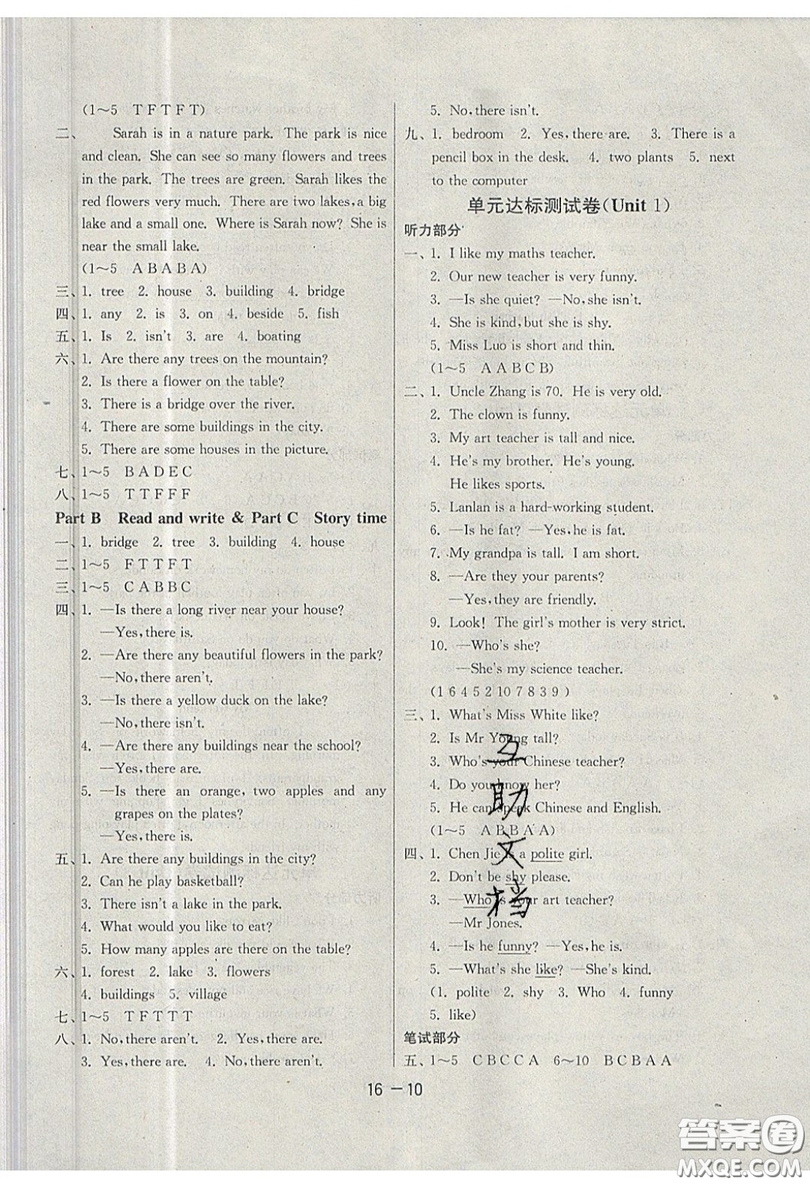 (1～5 T F T F T)
二、 Sarah is in a nature park. The park is nice
and clean. She can see so many flowers and trees
in the park. The trees are green. Sarah likes the
red flowers very much. There are two lakes, a big
lake and a small one. Where is Sarah now? She is
near the small lake.
(1～5 A B A B A)
三、1. tree 2. house 3. building 4. bridge
四、1. any 2. is 3. on 4. beside 5. fish
五、1. Is 2. isn't 3. are 4. boating
六、1. Are there any trees on the mountain?
2. Is there a flower on the table?
3. There is a bridge over the river.
4. There are some buildings in the city.
5. There are some houses in the picture.
七、1～5 B A D E C
八、1～5 T T F F F
Part B Read and write & Part C Story time
一、1. bridge 2. tree 3. building 4. house
二、1～5 F T T F T
三、1～5 C A B B C
四、1. —Is there a long river near your house?
—Yes, there is.
2. —Are there any beautiful flowers in the park?
—No, there aren't.
3. —Is there a yellow duck on the lake?
—No, there isn't.
4. —Are there any buildings near the school?
—Yes, there are.
5. —Is there an orange, two apples and any
grapes on the plates?
—Yes, there is.
五、1. Are there any buildings in the city?
2. Can he play basketball?
3. There isn't a lake in the park.
4. What would you like to eat?
5. How many apples are there on the table?
六、1. forest 2. lake 3. flowers
4. buildings 5. village
七、1～5 T F T T T
八、1. No, there aren't. 2. Yes, there are.
3. Yes, there are. 4. No, there aren't.
5. No, there isn't.
九、1. bedroom 2. Yes, there are. 3. There is a
pencil box in the desk. 4. two plants 5. next
to the computer
单元达标测试卷(Unit 1)
听力部分
一、1. I like my maths teacher.
2. Our new teacher is very funny.
3. —Is she quiet? —No, she isn't.
4. She is kind, but she is shy.
5. Miss Luo is short and thin.
(1～5 A A B C B)
二、1. Uncle Zhang is 70. He is very old.
2. The clown is funny.
3. My art teacher is tall and nice.
4. He's my brother. He's young.
He likes sports.
5. Lanlan is a hard-working student.
6. —Is he fat? —Yes, he is fat.
7. My grandpa is tall. I am short.
8. —Are they your parents?
—Yes, they are friendly.
9. Look! The girl's mother is very strict.
10. —Who's she?
—She's my science teacher.
(1 6 4 5 2 10 7 8 3 9)
三、1. What's Miss White like?
2. Is Mr Young tall?
3. Who's your Chinese teacher?
4. Do you know her?
5. He can speak Chinese and English.
(1～5 A B B A A)
四、1. Chen Jie is a polite girl.
2. Don't be shy please.
3. —Who is your art teacher?
—Mr Jones.
4. —Is he funny? —Yes, he is.
5. —What's she like? —She's kind.
(1. polite 2. shy 3. Who 4. funny
5. like)
笔试部分
五、1～5 C B C C A 6～10 B C B A A
16－10
互助文档
答案圈
MXQE.COM